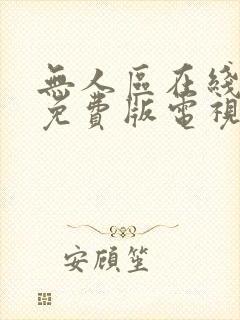 無人区在綫
免費版電視
安顾笙